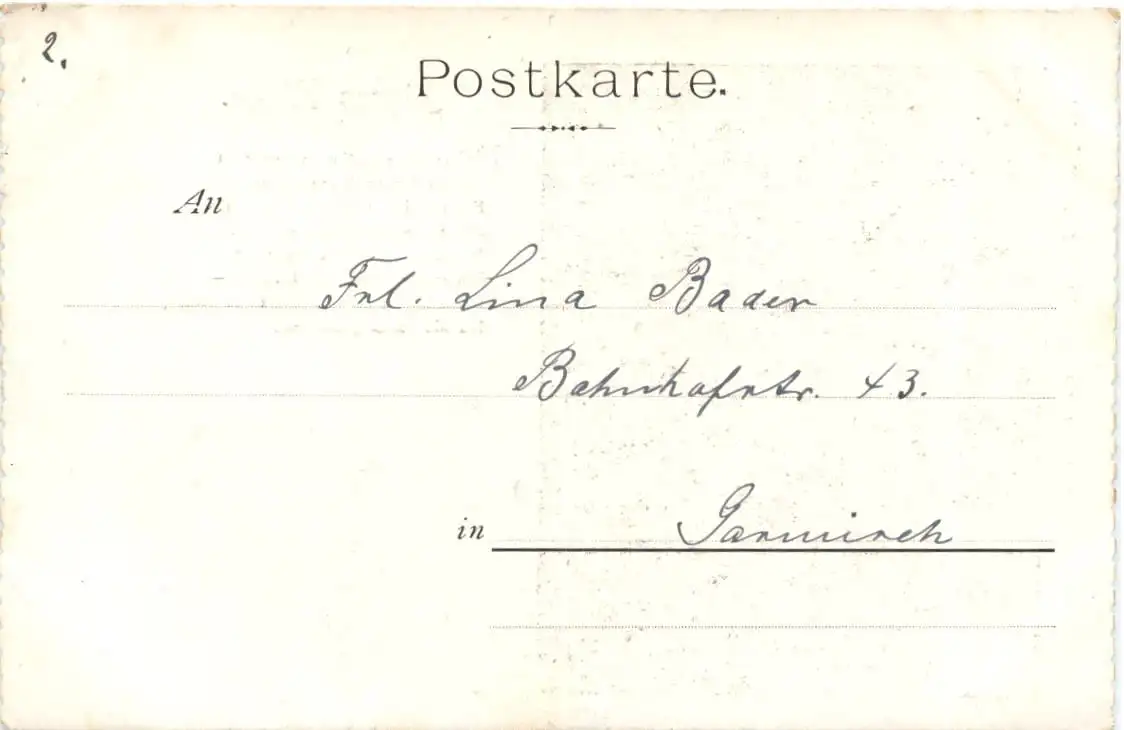 2.
Postkarte.
An
Frl. Lina Bader
Bahnhofstr. 43.
in Garmisch